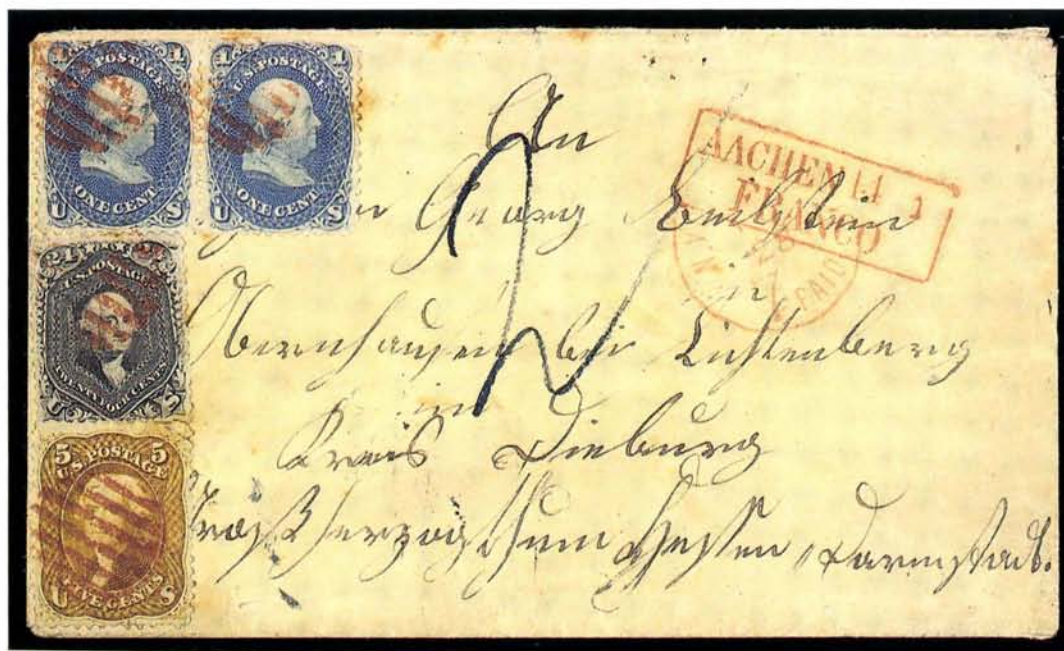 1 1
U.S. POSTAGE
ONE CENT
U S
1 1
U.S. POSTAGE
ONE CENT
U S
24 24
U.S. POSTAGE
TWENTY FOUR CENTS
U S
5 5
U.S. POSTAGE
FIVE CENTS
U S
AACHEN
FRANCO
PAID
An
Georg
in
Obernhausen bei Lichtenberg
in
Kreis Dieburg
Großherzogthum Hessen, Darmstadt.